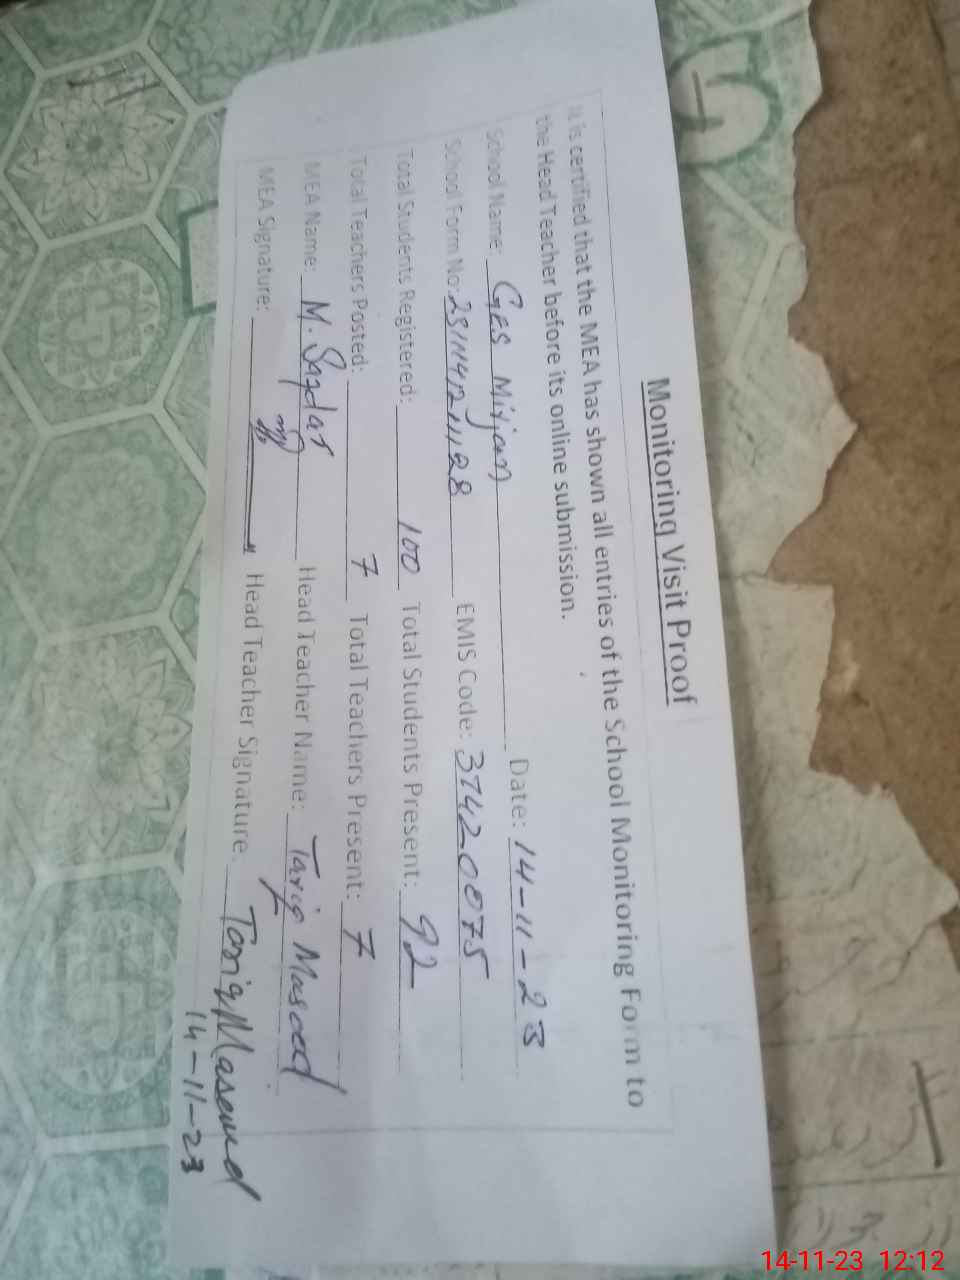 Monitoring Visit Proof
It is certified that the MEA has shown all entries of the School Monitoring Form to
the Head Teacher before its online submission.
School Name: GES Mitjan Date: 14-11-23
School Form No: EMIS Code: 37420875
Total Students Registered: 100 Total Students Present: 92
Total Teachers Posted: 7 Total Teachers Present: 7
MEA Name: M. Safdar Head Teacher Name: Tariq Masood
MEA Signature: Head Teacher Signature: Tariq Masood
14-11-23
14-11-23 12:12